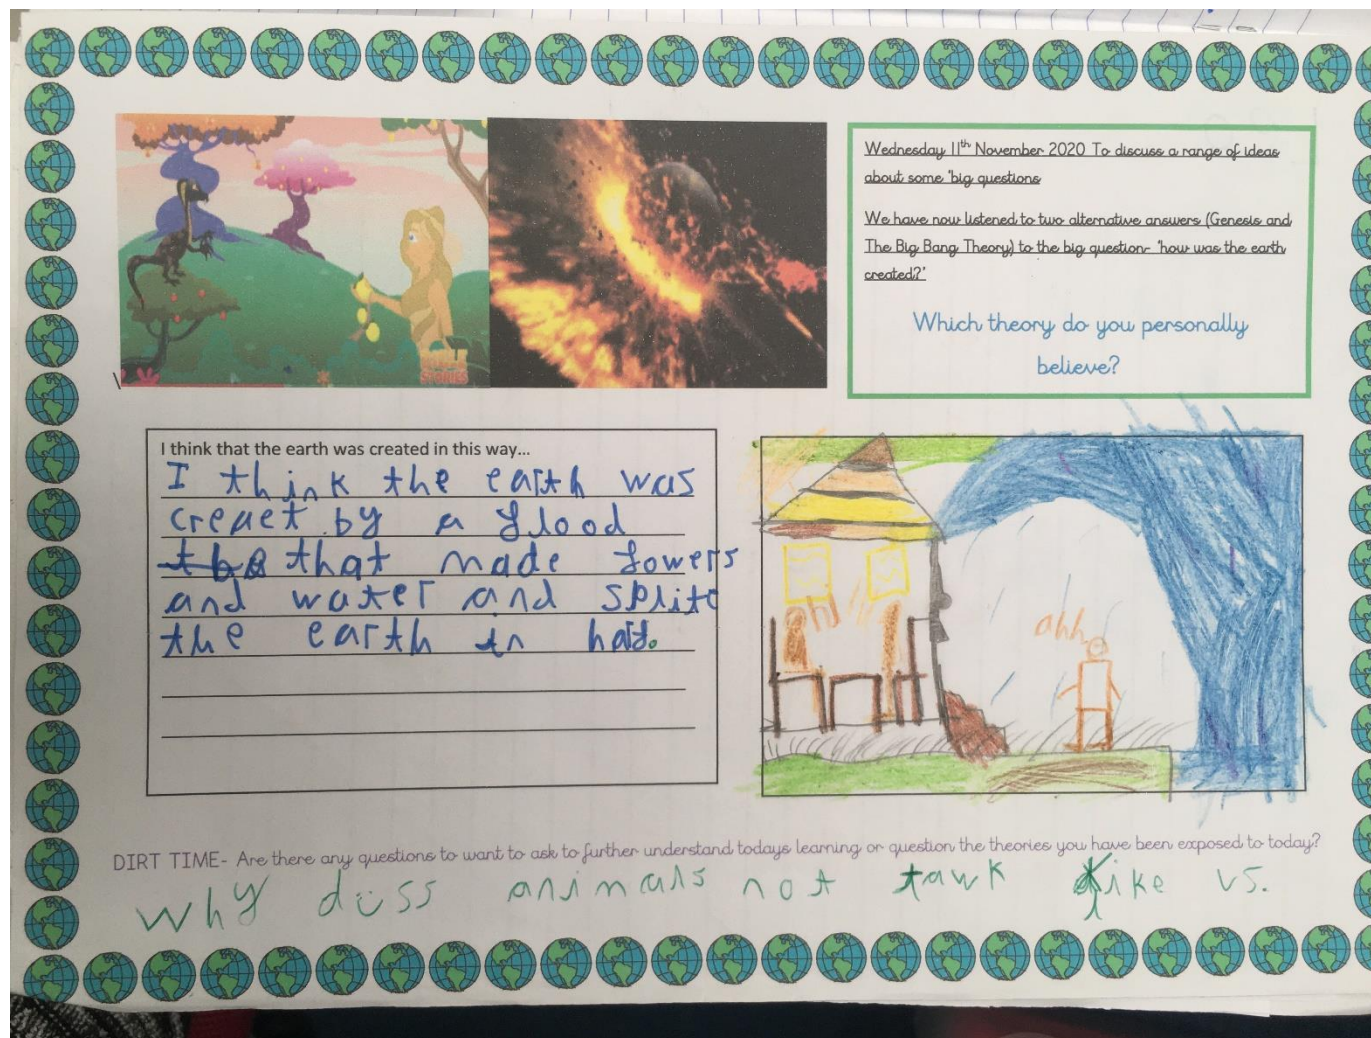 STORIES
Wednesday 11th November 2020 To discuss a range of ideas
about some 'big questions
We have now listened to two alternative answers (Genesis and
The Big Bang Theory) to the big question- 'how was the earth
created?'
Which theory do you personally
believe?
I think that the earth was created in this way...
I think the earth was
creaet by a flood
that made fowers
and water and splite
the earth in half.
ahh
DIRT TIME- Are there any questions to want to ask to further understand todays learning or question the theories you have been exposed to today?
Why duss animals not tawk like us.